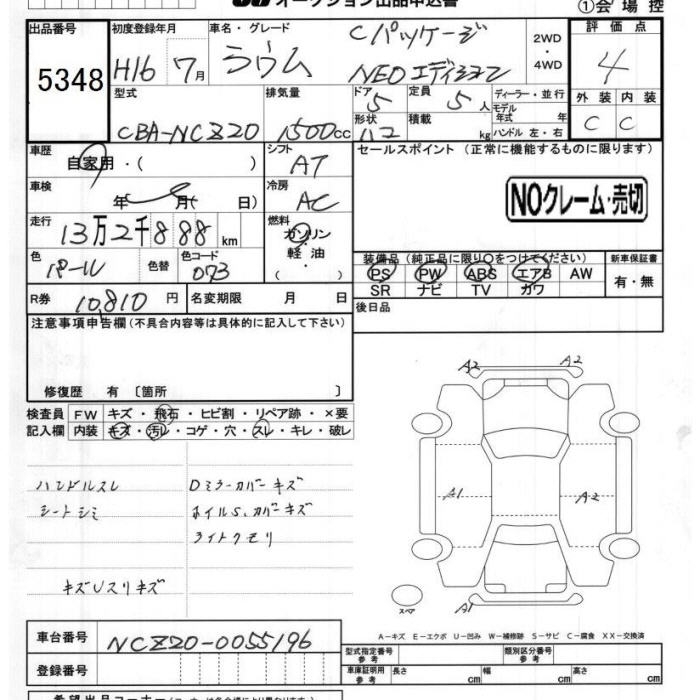 オークション出品申込書
①会場控
出品番号 初度登録年月 車名・グレード Cパッケージ 2WD・4WD 評価点
5348 H16 7月 ラウム NEOエディション 4
型式 排気量 ドア 5 定員 5人 ディーラー・並行 外装 内装
CBA-NCZ20 1500cc 形状 ハコ 積載 kg モデル年式 年 ハンドル 左・右 C C
車歴 自家用・( ) シフト AT セールスポイント (正常に機能するものに限ります)
車検 年 月( 日) 冷房 AC NOクレーム・売切
走行 13万2千888km 燃料 ガソリン・軽油・
装備品 (純正品に限り○をつけてください) 新車保証書
色 パール 色替 色コード 073 PS PW ABS エアB AW 有・無
SR ナビ TV カワ
R券 10,810円 名変期限 月 日 後日品
注意事項申告欄 (不具合内容等は具体的に記入して下さい)
修復歴 有 〔箇所 〕
検査員 FW キズ・飛石・ヒビ割・リペア跡・×要
記入欄 内装 キズ・汚レ・コゲ・穴・スレ・キレ・破レ
A2 A2
ハンドルスレ Dミラーカバーキズ
シートシミ ホイルS,カバーキズ
A1 A2
ライトクモリ
キズUスリキズ
スペア A1
A-キズ E-エクボ U-凹み W-補修跡 S-サビ C-腐食 XX-交換済
車台番号 NCZ20-0055196
型式指定番号 参考 類別区分番号 参考
登録番号 車庫証明用 参考 長さ cm 幅 cm 高さ cm
希望出品コーナー